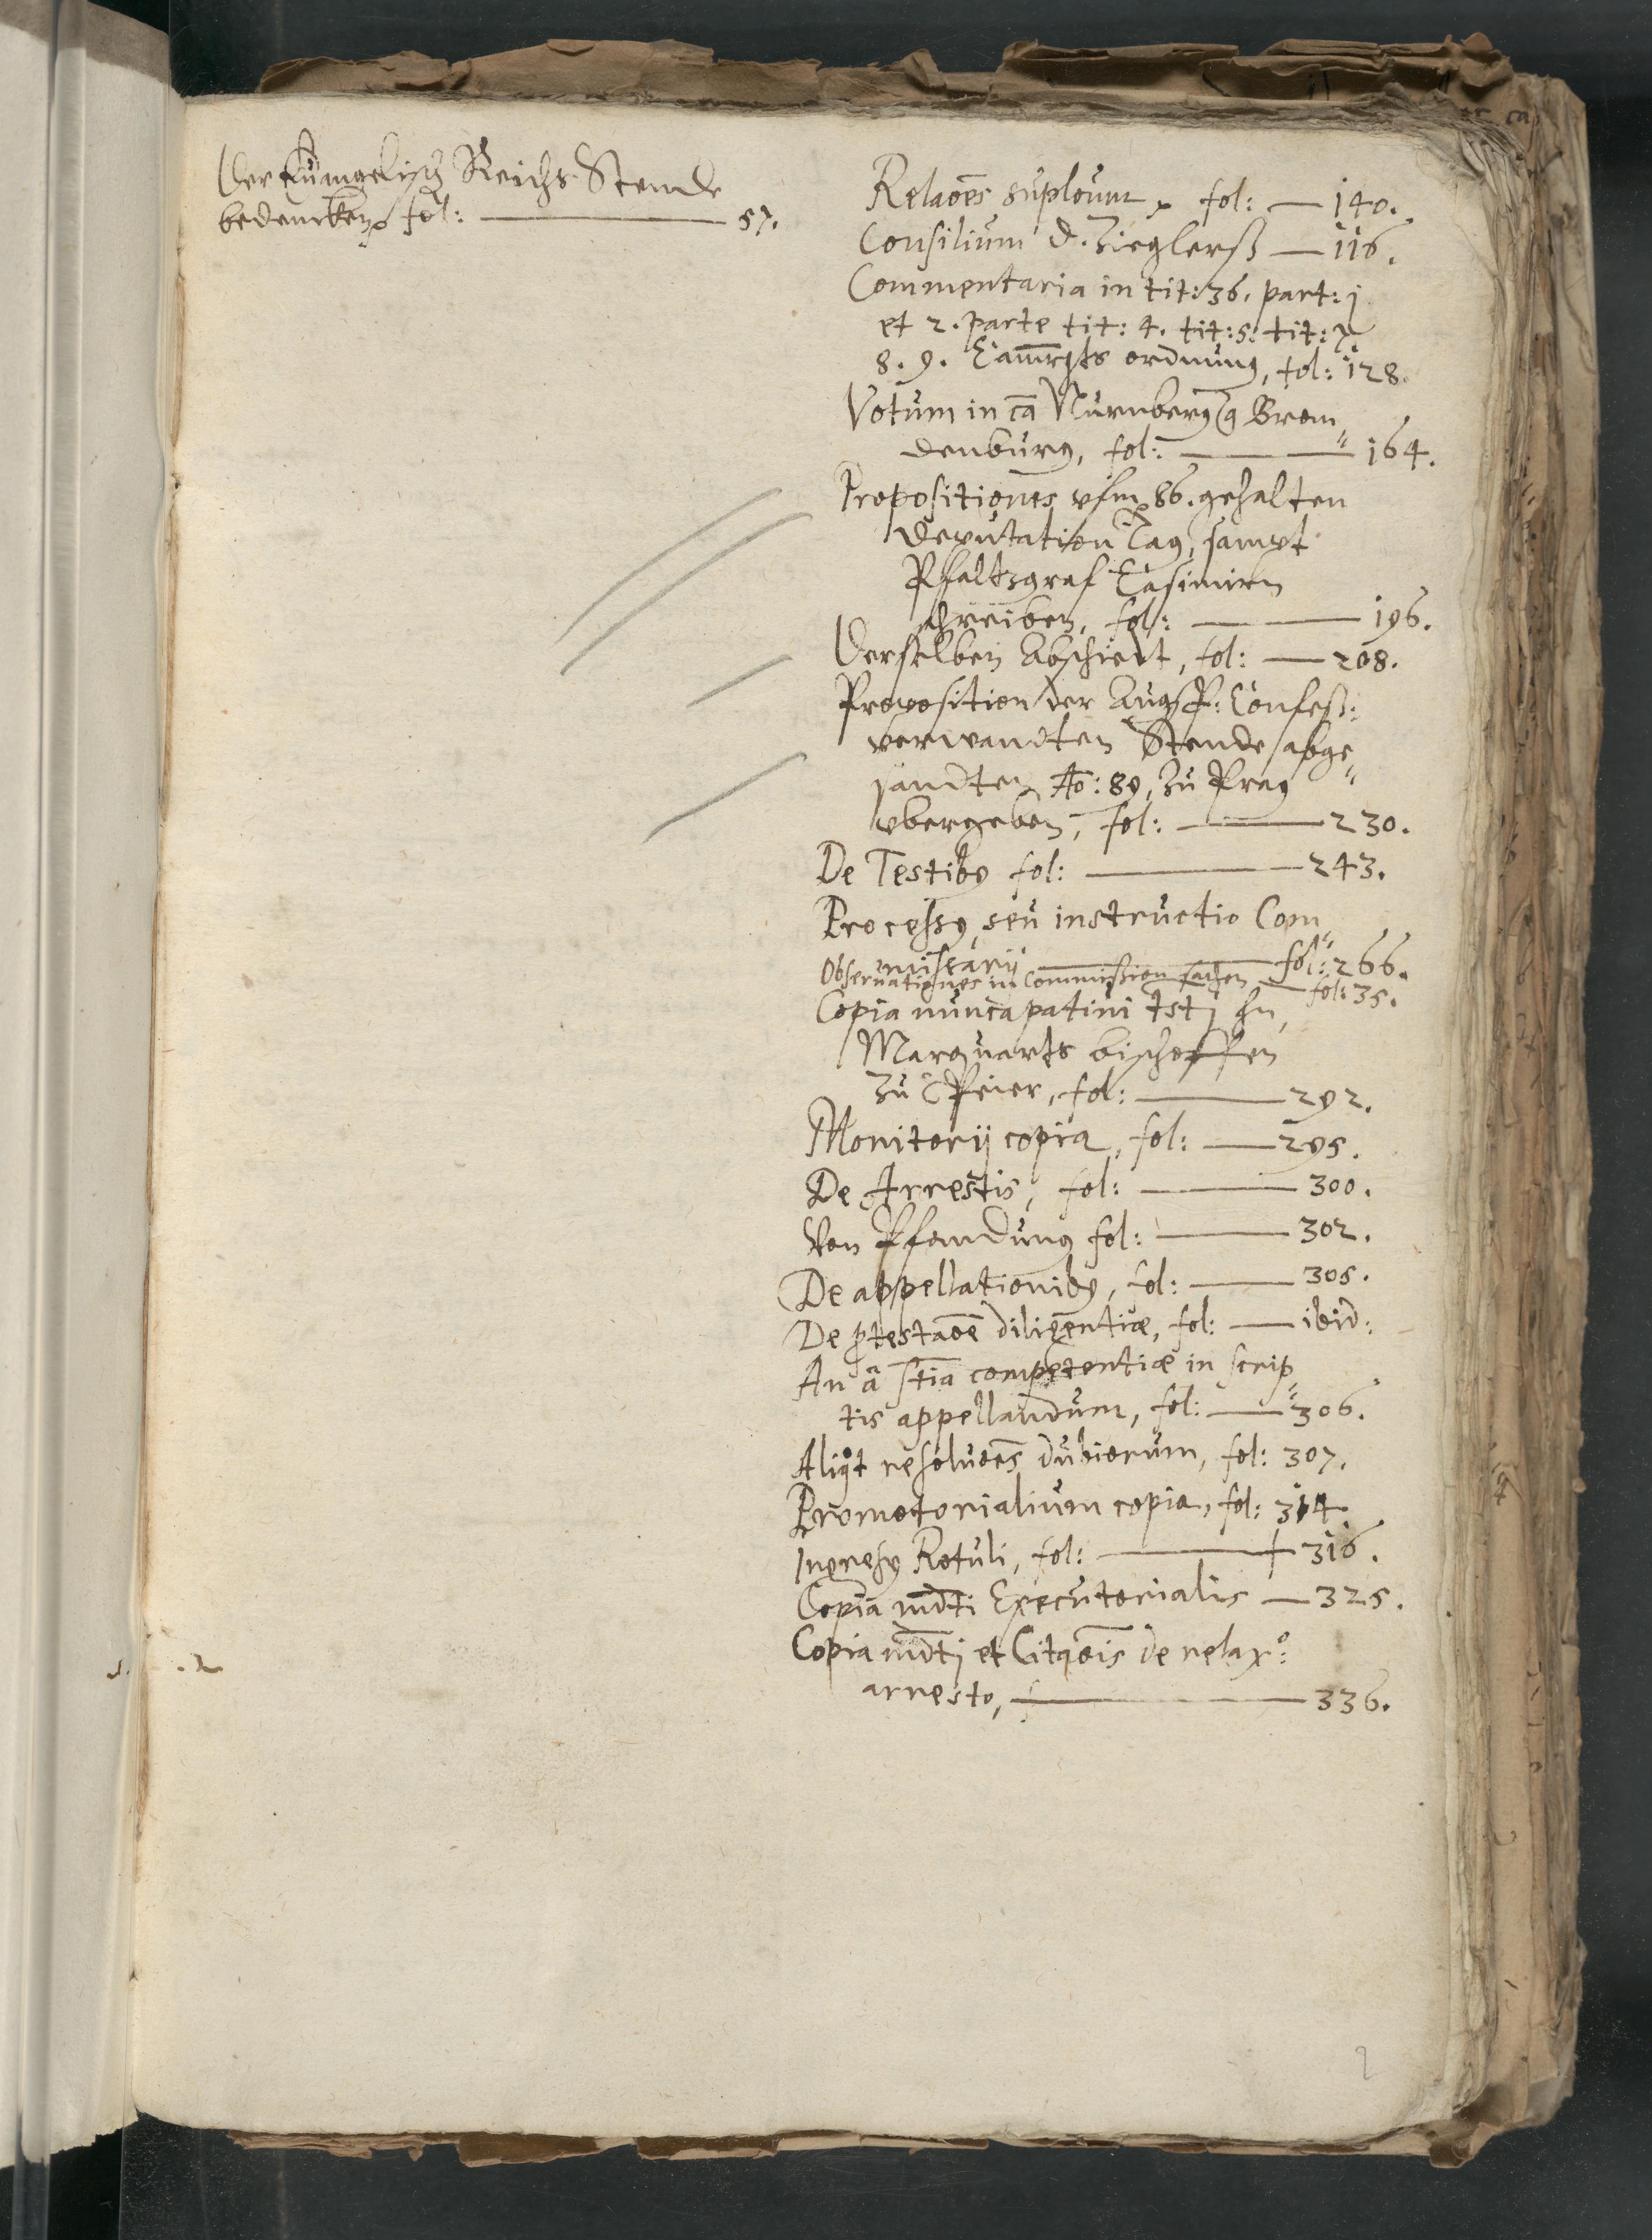 Der Euangelisch Reichs Stende
bedencken fol: 57.
Relaoẽs fol: 140.
Consilium D. Zieglerß 116.
Commentaria in tit: 36. part: j
et 2. parte tit: 4. tit: 5: tit: 7.
8. 9. Cam̃rgts ordnung, fol: 128.
Votum in cã Nürnberg Bran,,
denburg, fol: 164.
Propositiones vfm 86. gehalten
Deputation Tag, sampt
Pfaltzgraf Casimirn
schreiben, fol: 196.
Derselben Abschiedt, fol: 208.
Proposition der Augsp: Confess:
verwandten Stende abge,,
sandten Ao: 89, zu Prag
vbergeben, fol: 230.
De Testibꝯ fol: 243.
Processꝯ, seu instructio Com,,
missarij fol: 266.
Observationes in Commission sachen fol: 35.
Copia
Marquarts bischoffen
zu Speier, fol: 292.
Monitorij copia, fol: 295.
De Arrestis, fol: 300.
Von Pfandung fol: 302.
De appellationibꝯ, fol: 305.
De ꝓtestaoẽ diligentiæ, fol: ibid:
An â stiã competentiæ in scrip,,
tis appellandum, fol: 306.
Aliqͦt resoluoẽs dubiorum, fol: 307.
Promotorialium copia, fol: 314.
Ingressꝯ Rotuli, fol: 316.
Copia mdti Executorialis 325.
Copia mdtj et Citaoĩs de relax:º
arresto, 336.
2